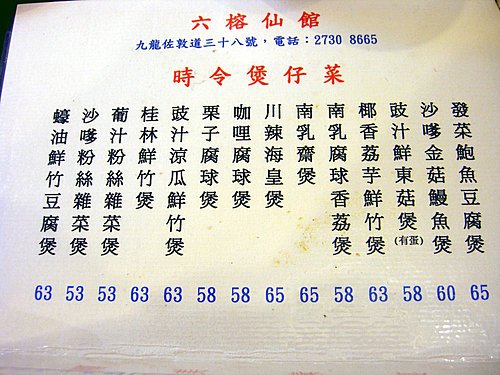 六榕仙館
九龍佐敦道三十八號，電話：2730 8665
時令煲仔菜
發菜鮑魚豆腐煲
沙嗲金菇鰻魚煲
豉汁鮮東菇煲(有蛋)
椰香荔芋鮮竹煲
南乳腐球香荔煲
南乳齋煲
川辣海皇煲
咖哩腐球煲
栗子腐球煲
豉汁涼瓜鮮竹煲
桂林鮮竹煲
葡汁粉絲雜菜煲
沙嗲粉絲雜菜煲
蠔油鮮竹豆腐煲
63 53 53 63 63 58 58 65 65 58 63 58 60 65